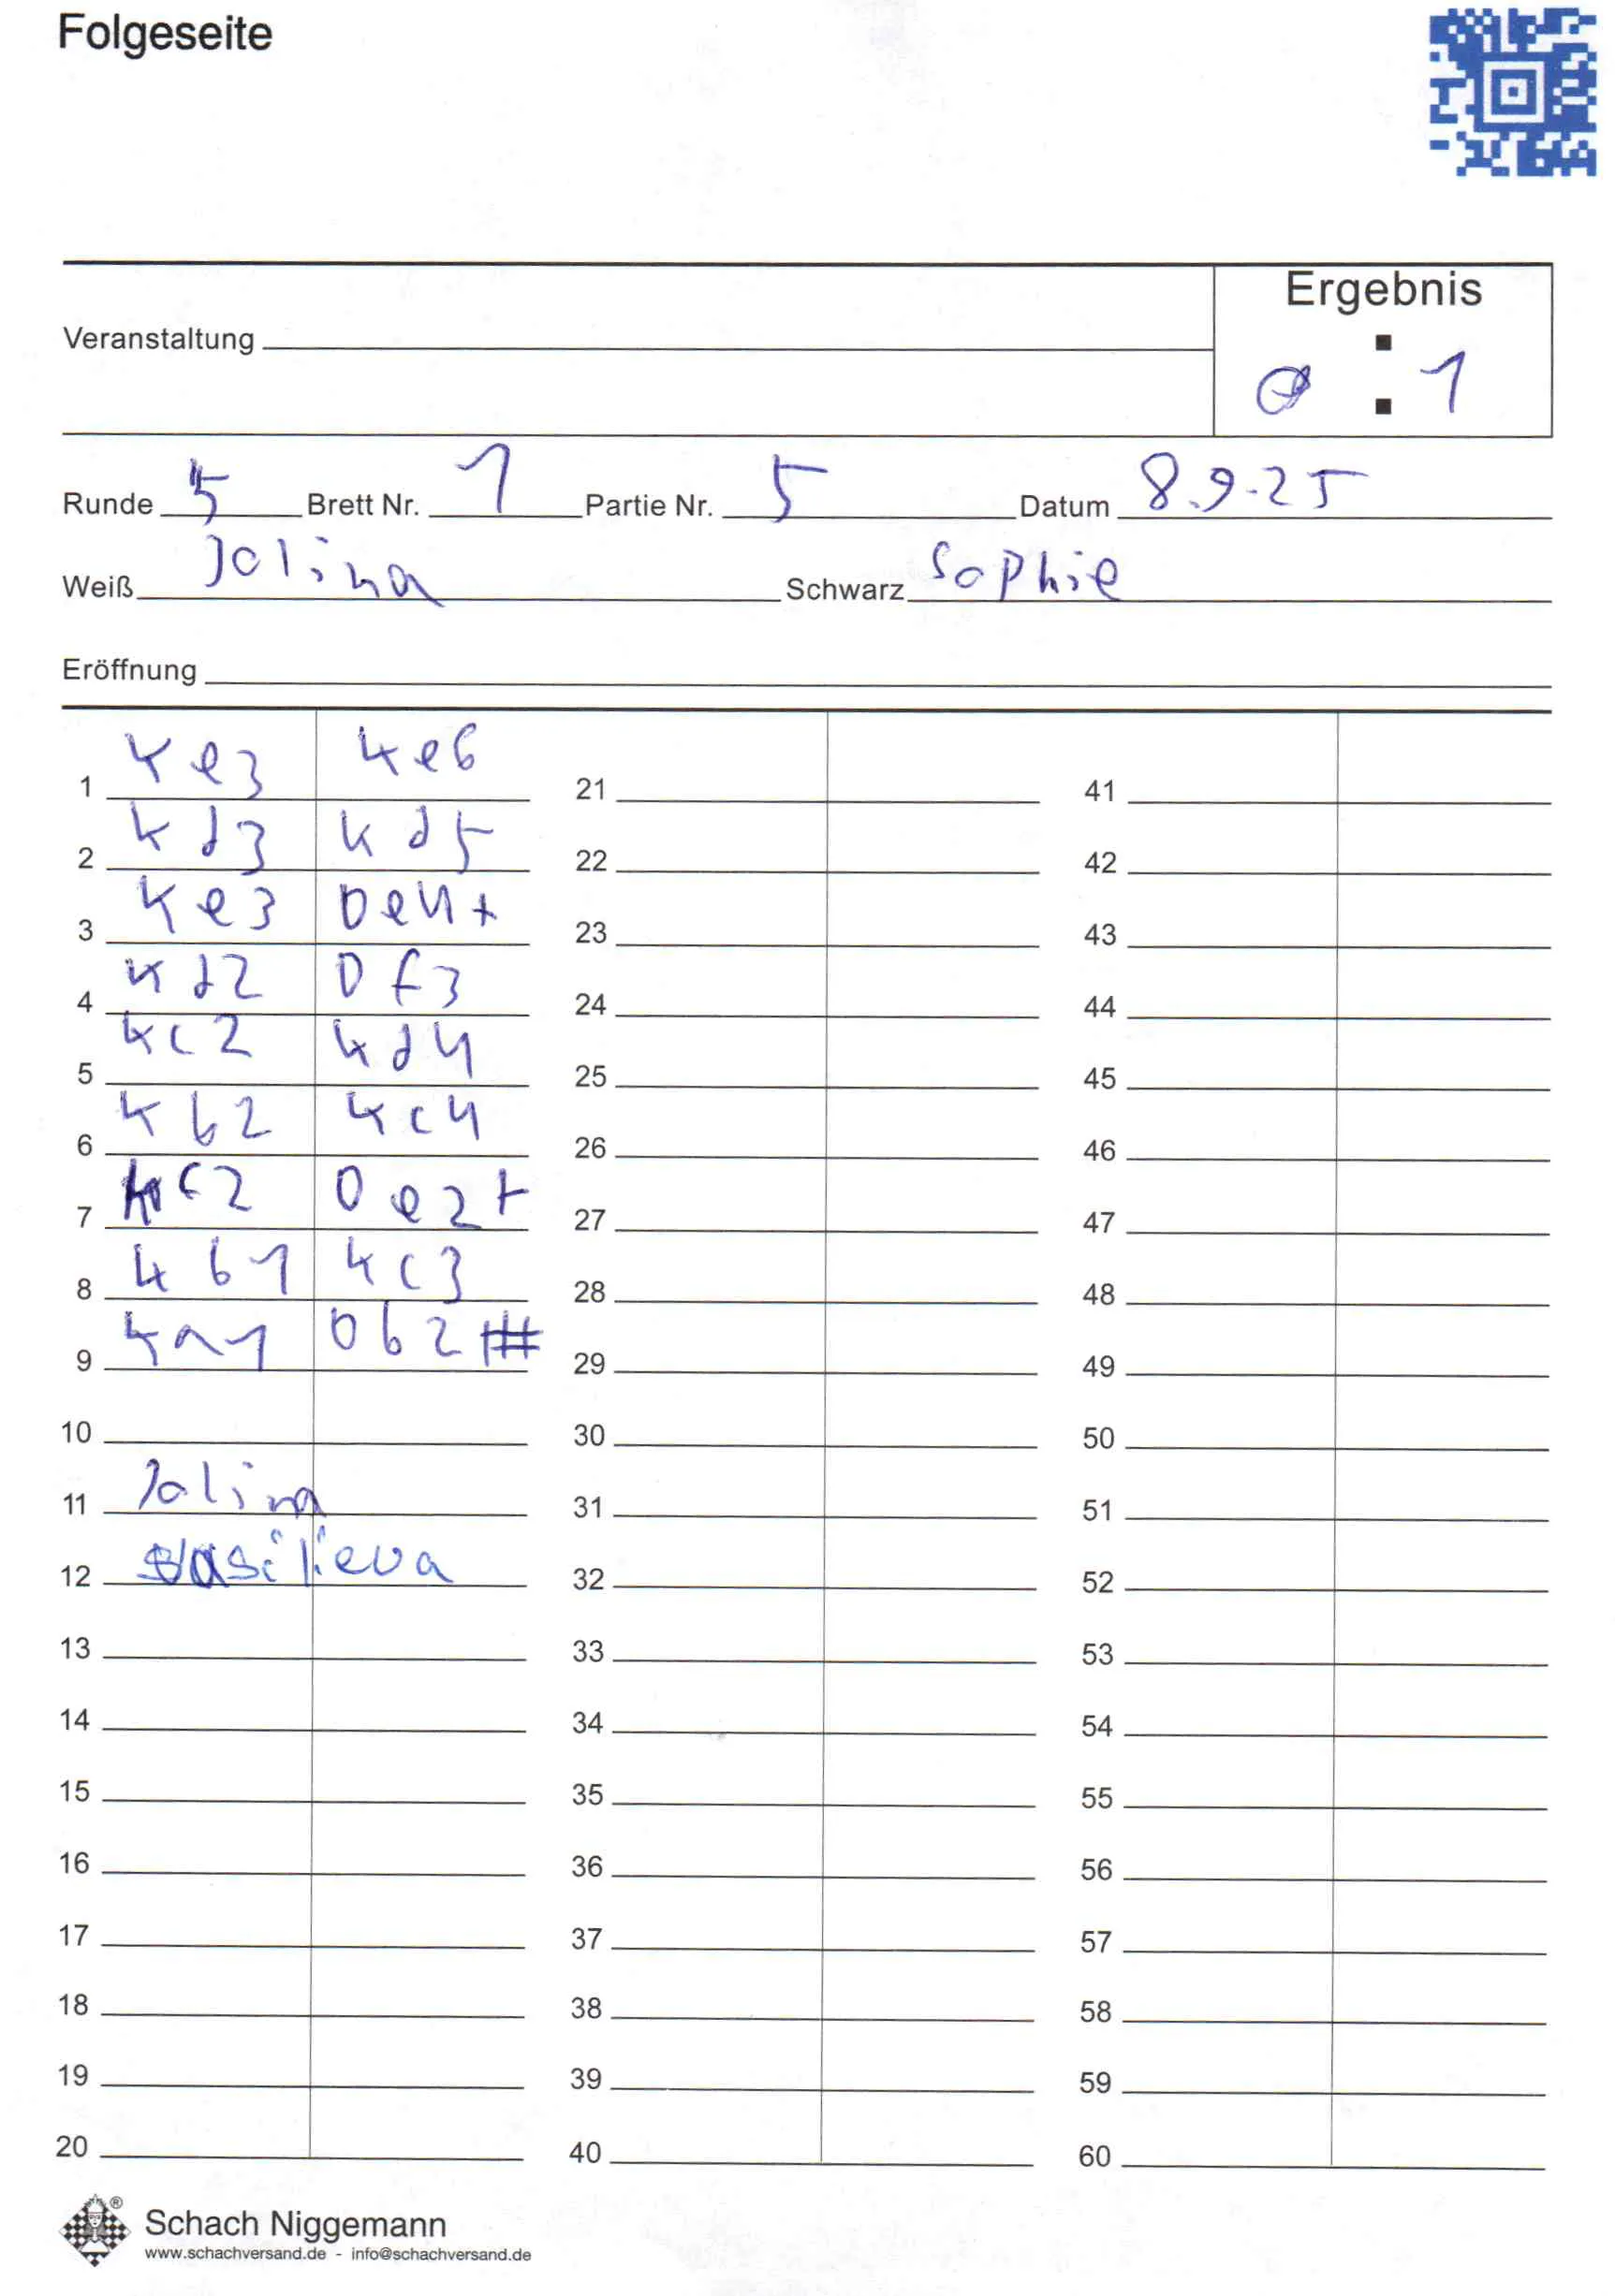 Folgeseite
Ergebnis
Veranstaltung
0 : 1
Runde 5 Brett Nr. 1 Partie Nr. 5 Datum 8.9.25
Weiß Jolina Schwarz Sophie
Eröffnung
1 Ke3 Ke6 21 41
2 Kd3 Kd5 22 42
3 Ke3 De4+ 23 43
4 Kd2 Df3 24 44
5 Kc2 Kd4 25 45
6 Kb2 Kc4 26 46
7 Kc2 De2+ 27 47
8 Kb1 Kc3 28 48
9 Ka1 Db2# 29 49
10 30 50
11 Jolina 31 51
12 Vasilieva 32 52
13 33 53
14 34 54
15 35 55
16 36 56
17 37 57
18 38 58
19 39 59
20 40 60
® Schach Niggemann
www.schachversand.de - info@schachversand.de